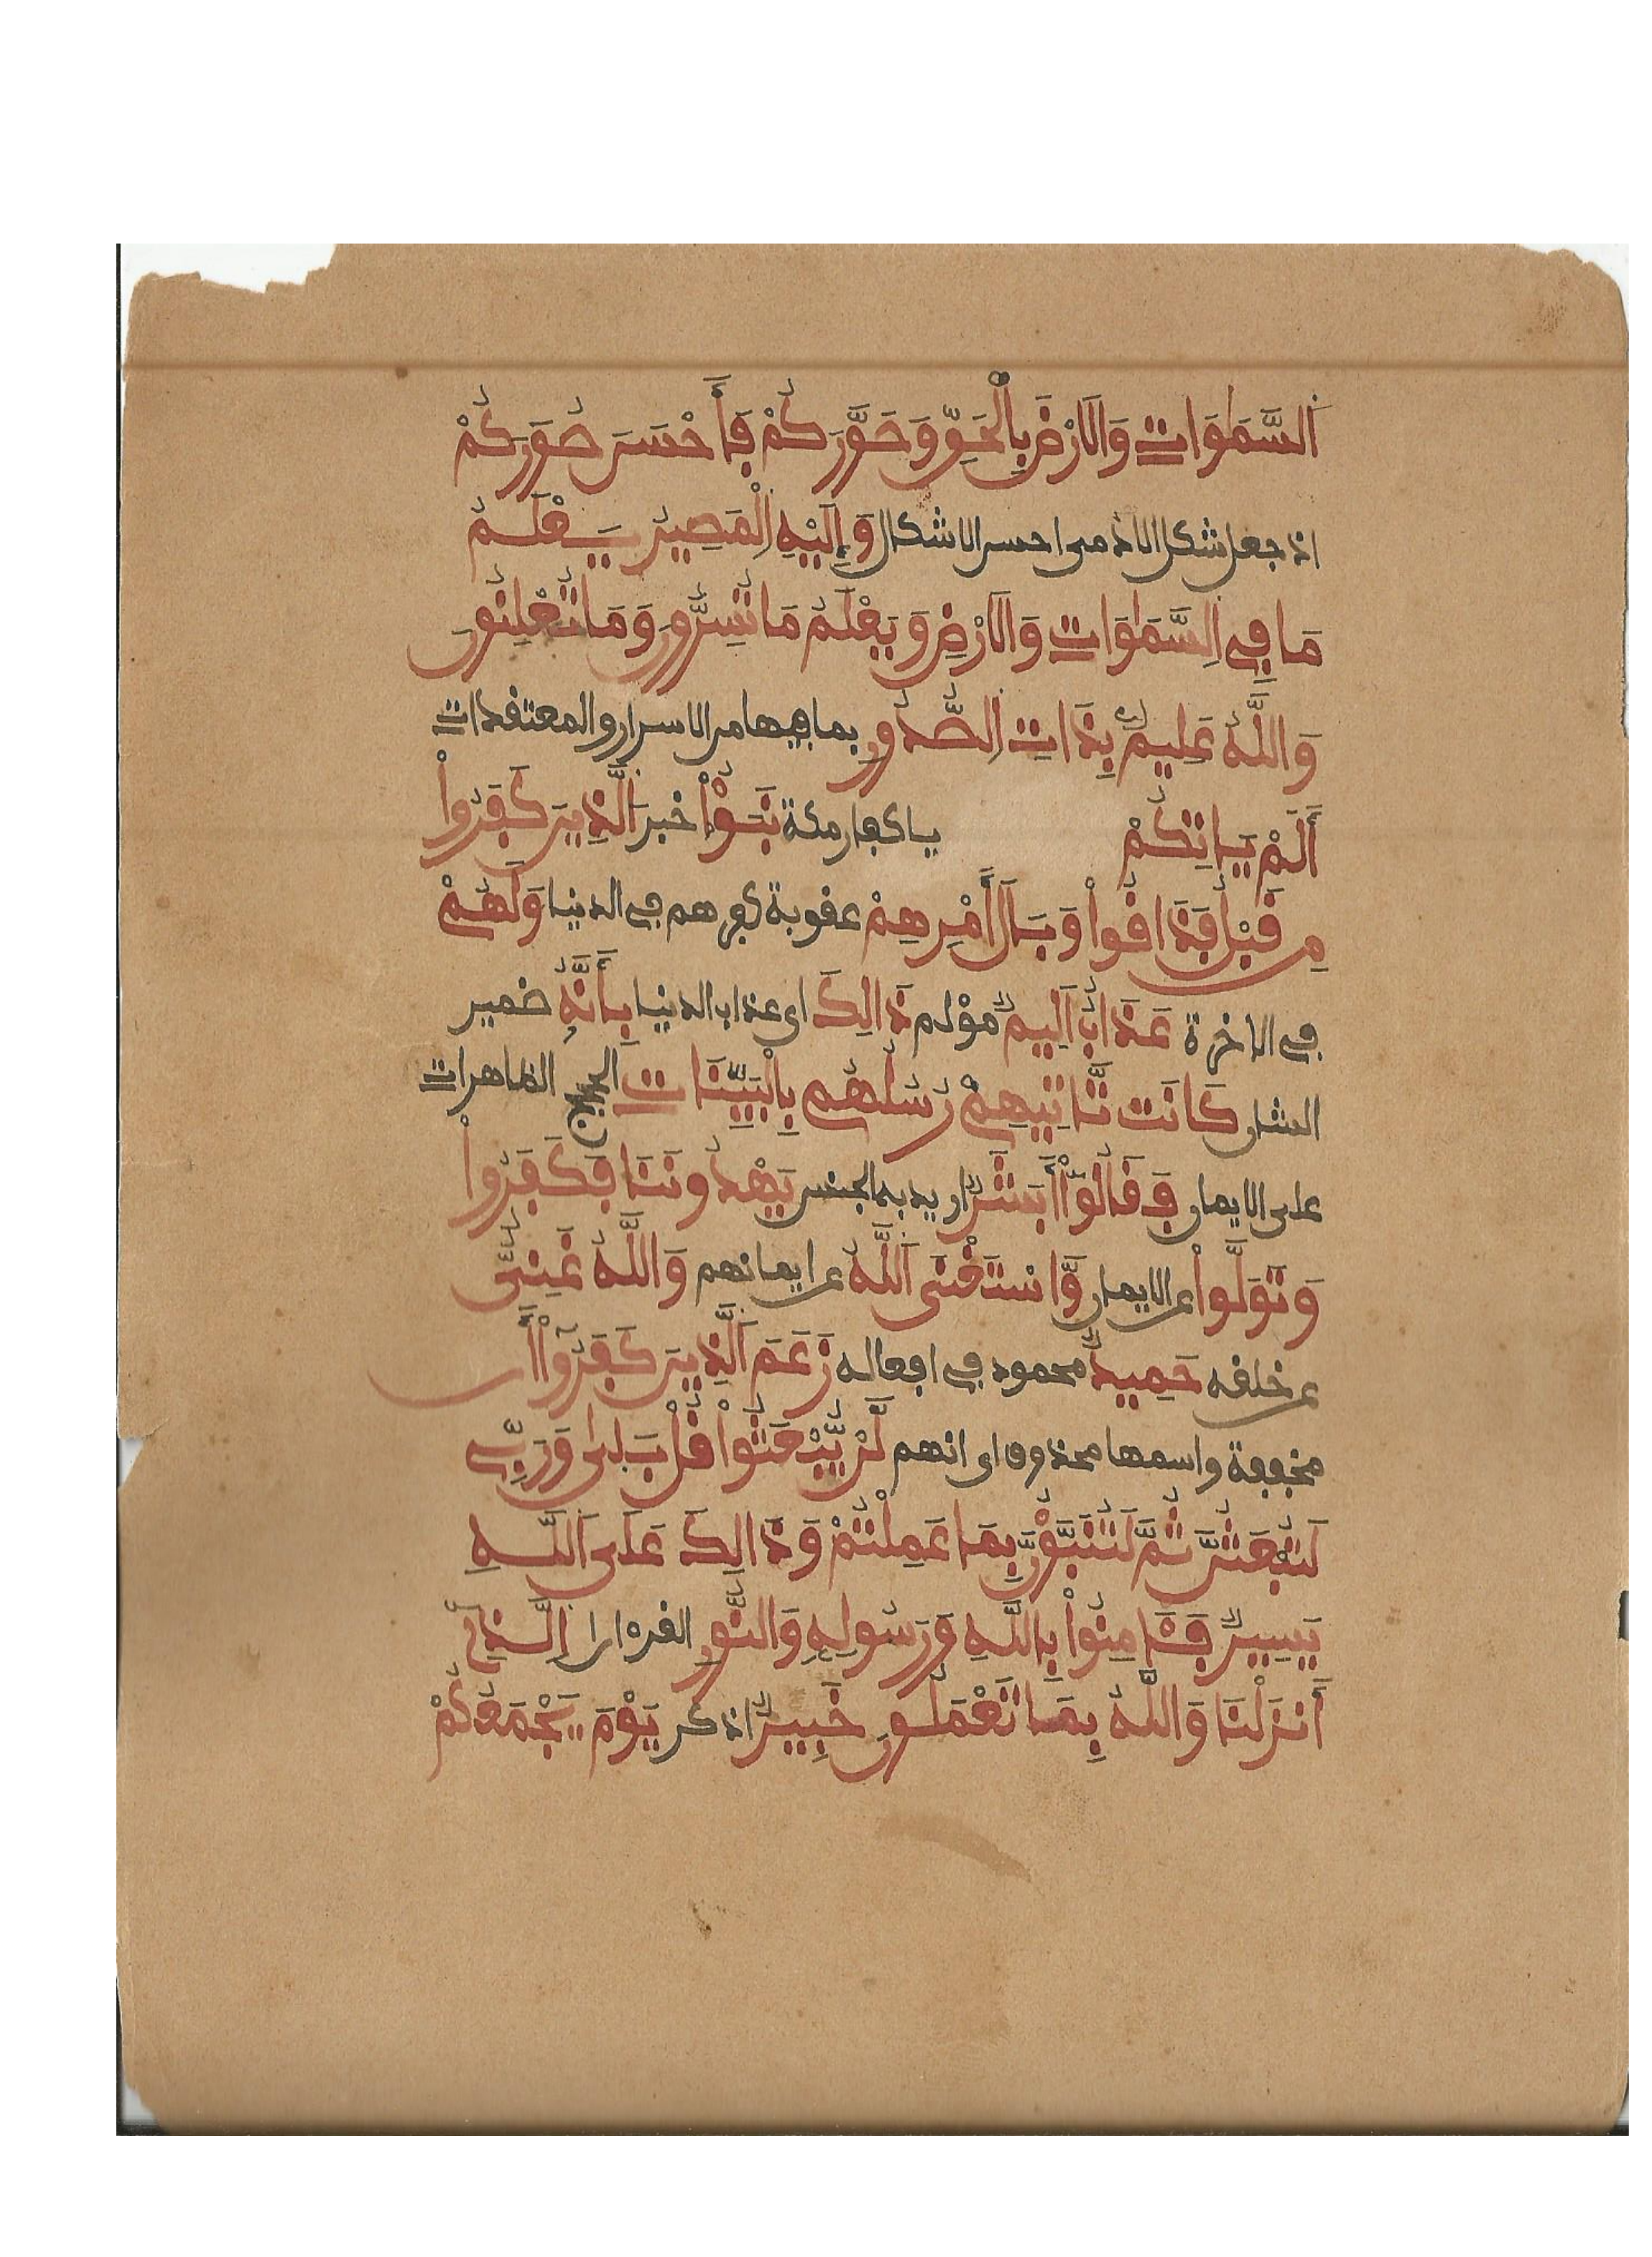 السَّمَٰوَاتِ وَالَارْضَ بِالْحَقِّ وَصَوَّرَكُمْ فَأَحْسَنَ صُوَرَكُمْ
اذ جعل شكل الادمى احسن الاشكال وَإِلَيْهِ اِلْمَصِيرُ يَعْلَمُ
مَا فِي اِلسَّمَٰوَاتِ وَالَارْضِ وَيَعْلَمُ مَا تُسِرُّونَ وَمَا تُعْلِنُونَ
وَاللَّهُ عَلِيمٌ بِذَاتِ اِلصُّدُورِ بما فيها من الاسرار والمعتقدات
أَلَمْ يَاتِكُمْ يا كفار مكة نَبَؤُاْ خبر اَلَّذِينَ كَفَرُواْ
مِن قَبْلُ فَذَاقُواْ وَبَالَ أَمْرِهِمْ عقوبة كفرهم في الدنيا وَلَهُمْ
في الاخرة عَذَابٌ اَلِيمٌ مؤلم ذَالِكَ اى عذاب الدنيا بِأَنَّهُ ضمير
الشان كَانَت تَّاتِيهِمْ رُسُلُهُم بِالْبَيِّنَاتِ الحجج الظاهرات
على الايمان فَقَالُوٓاْ أَبَشَرٌ اريد به الجنس يَهْدُونَنَا فَكَفَرُواْ
وَتَوَلَّواْ عن الايمان وَّاسْتَغْنَى اَللَّهُ عن ايمانهم وَاللَّهُ غَنِيٌّ
عن خلقه حَمِيدٌ محمود في افعاله زَعَمَ اَلَّذِينَ كَفَرُوٓاْ أَن
مخففة واسمها محذوف اى انهم لَّنْ يُّبْعَثُواْ قُلْ بَلَىٰ وَرَبِّي
لَتُبْعَثُنَّ ثُمَّ لَتُنَبَّؤُنَّ بِمَا عَمِلْتُمْ وَذَالِكَ عَلَى اَللَّهِ
يَسِيرٌ فَـَٔامِنُواْ بِاللَّهِ وَرَسُولِهِ وَالنُّورِ القرءان اِلَّذِي
أَنزَلْنَا وَاللَّهُ بِمَا تَعْمَلُونَ خَبِيرٌ اذكر يَوْمَ يَجْمَعُكُمْ